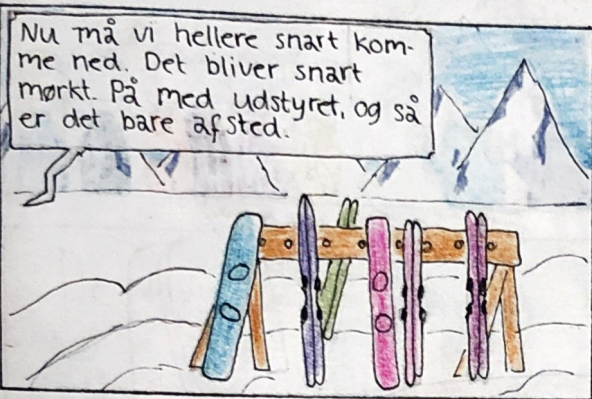 Nu må vi hellere snart kom-
me ned. Det bliver snart
mørkt. På med udstyret, og så
er det bare afsted.